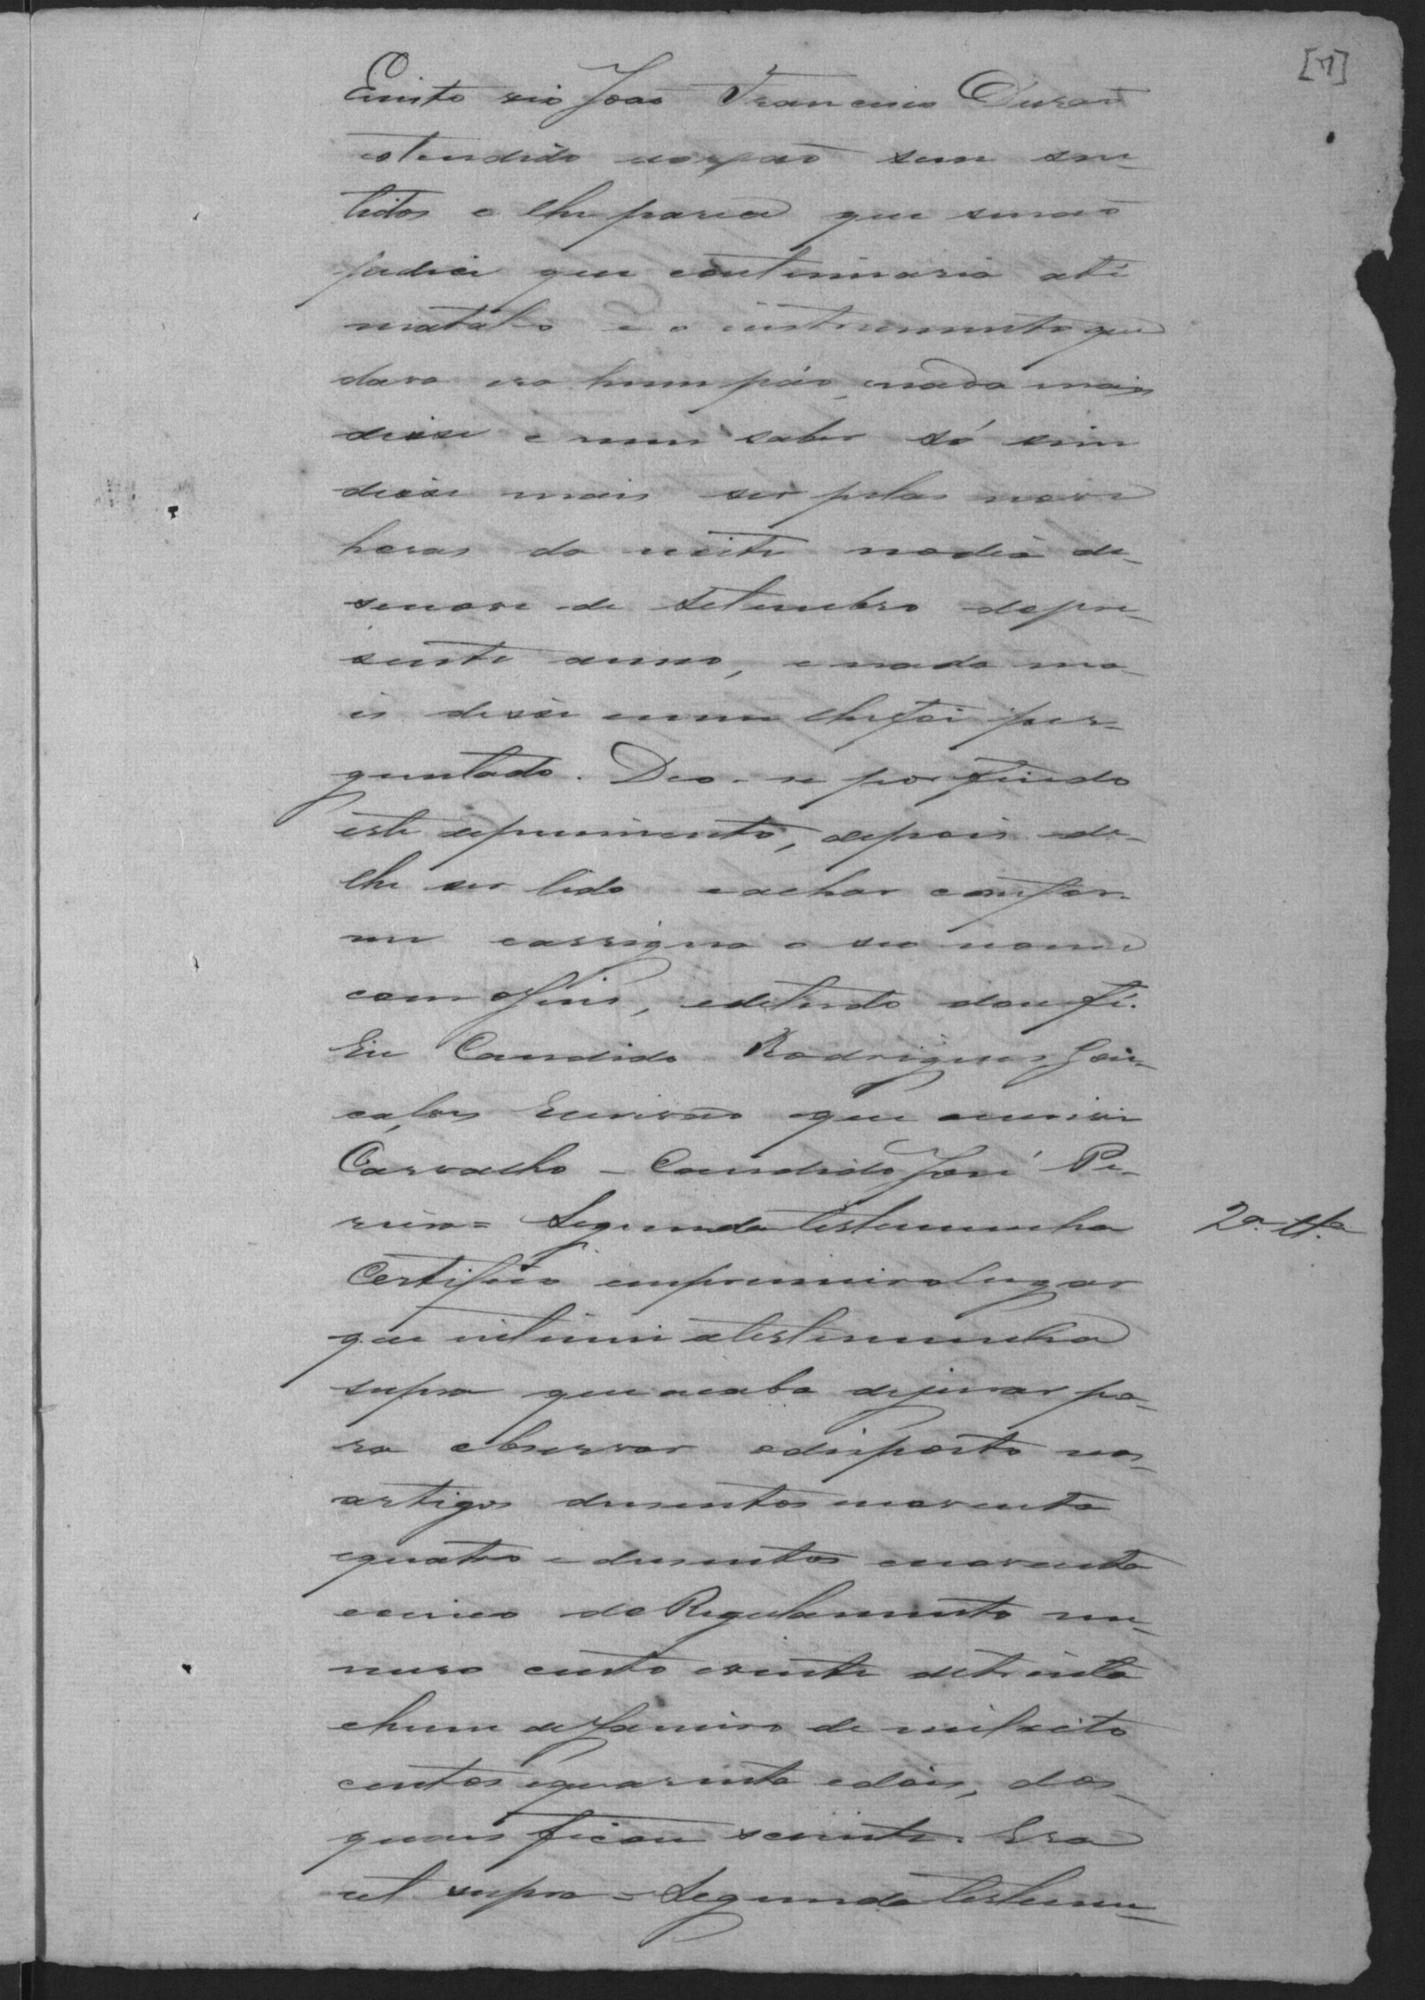 [7]
Emito vio João Francisco Durão
estendido no xão sem sen-
tidos e lhe parece que senão
que continuaria até
matalo e o instrumento que
dava era hum páo, e nada mais
disse e nem saber só sim
disse mais ser pelas nove
horas da noite no dia de-
senove de Setembro do pre-
sente anno, e nada ma-
is disse e nem lhe foi per-
guntado. Deo-se por findo
este depoimento, depois de
lhe ser lido e achar confor-
me e assigna o seo nome
com o Juis, e de tudo dou fé.
Eu Candido Rodrigues Gon-
çalves Escrivão que escrivi
Carvalho - Candido José Pe-
reira = Segunda testemunha
2ª tt.ª
Certifico em primeiro lugar
que intimei a testemunha
supra que acaba de jurar pa-
ra observar o disposto nos
artigos dusentos e noventa
e quatro e dusentos e noventa
e cinco do Regulamento nu-
mero cento e vinte de trinta
e hum de Janeiro de mil oito
centos e quarenta e dois, dos
quais ficou sciente. Era
ut supra = Segunda testemu-